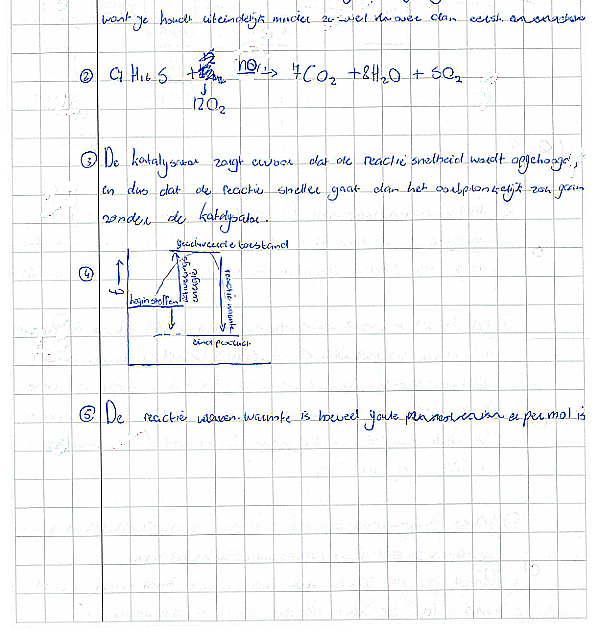 want je houdt uiteindelijk minder zwavel na over dan eerst
② C7H16S + → 7CO2 + 8H2O + SO2
12O2
③ De katalysator zorgt ervoor dat de reactie snelheid wordt opgehoogd,
en dus dat de reactie sneller gaat dan het oorspronkelijk zou gaan
zonder de katalysator.
geactiveerde toestand
④
E
beginstoffen
activerings
energie
reactie warmte
eindproduct
⑤ De reactie warmte is hoeveel joule er per mol is